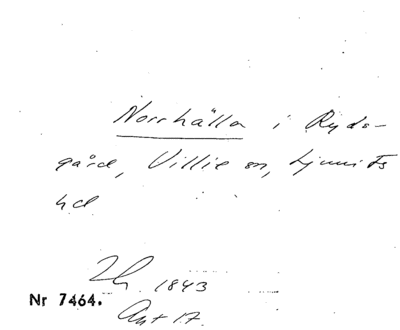 Norrhälla i Ryds-
gård, Villie sn, Ljunits
hd
1843
Nr 7464.